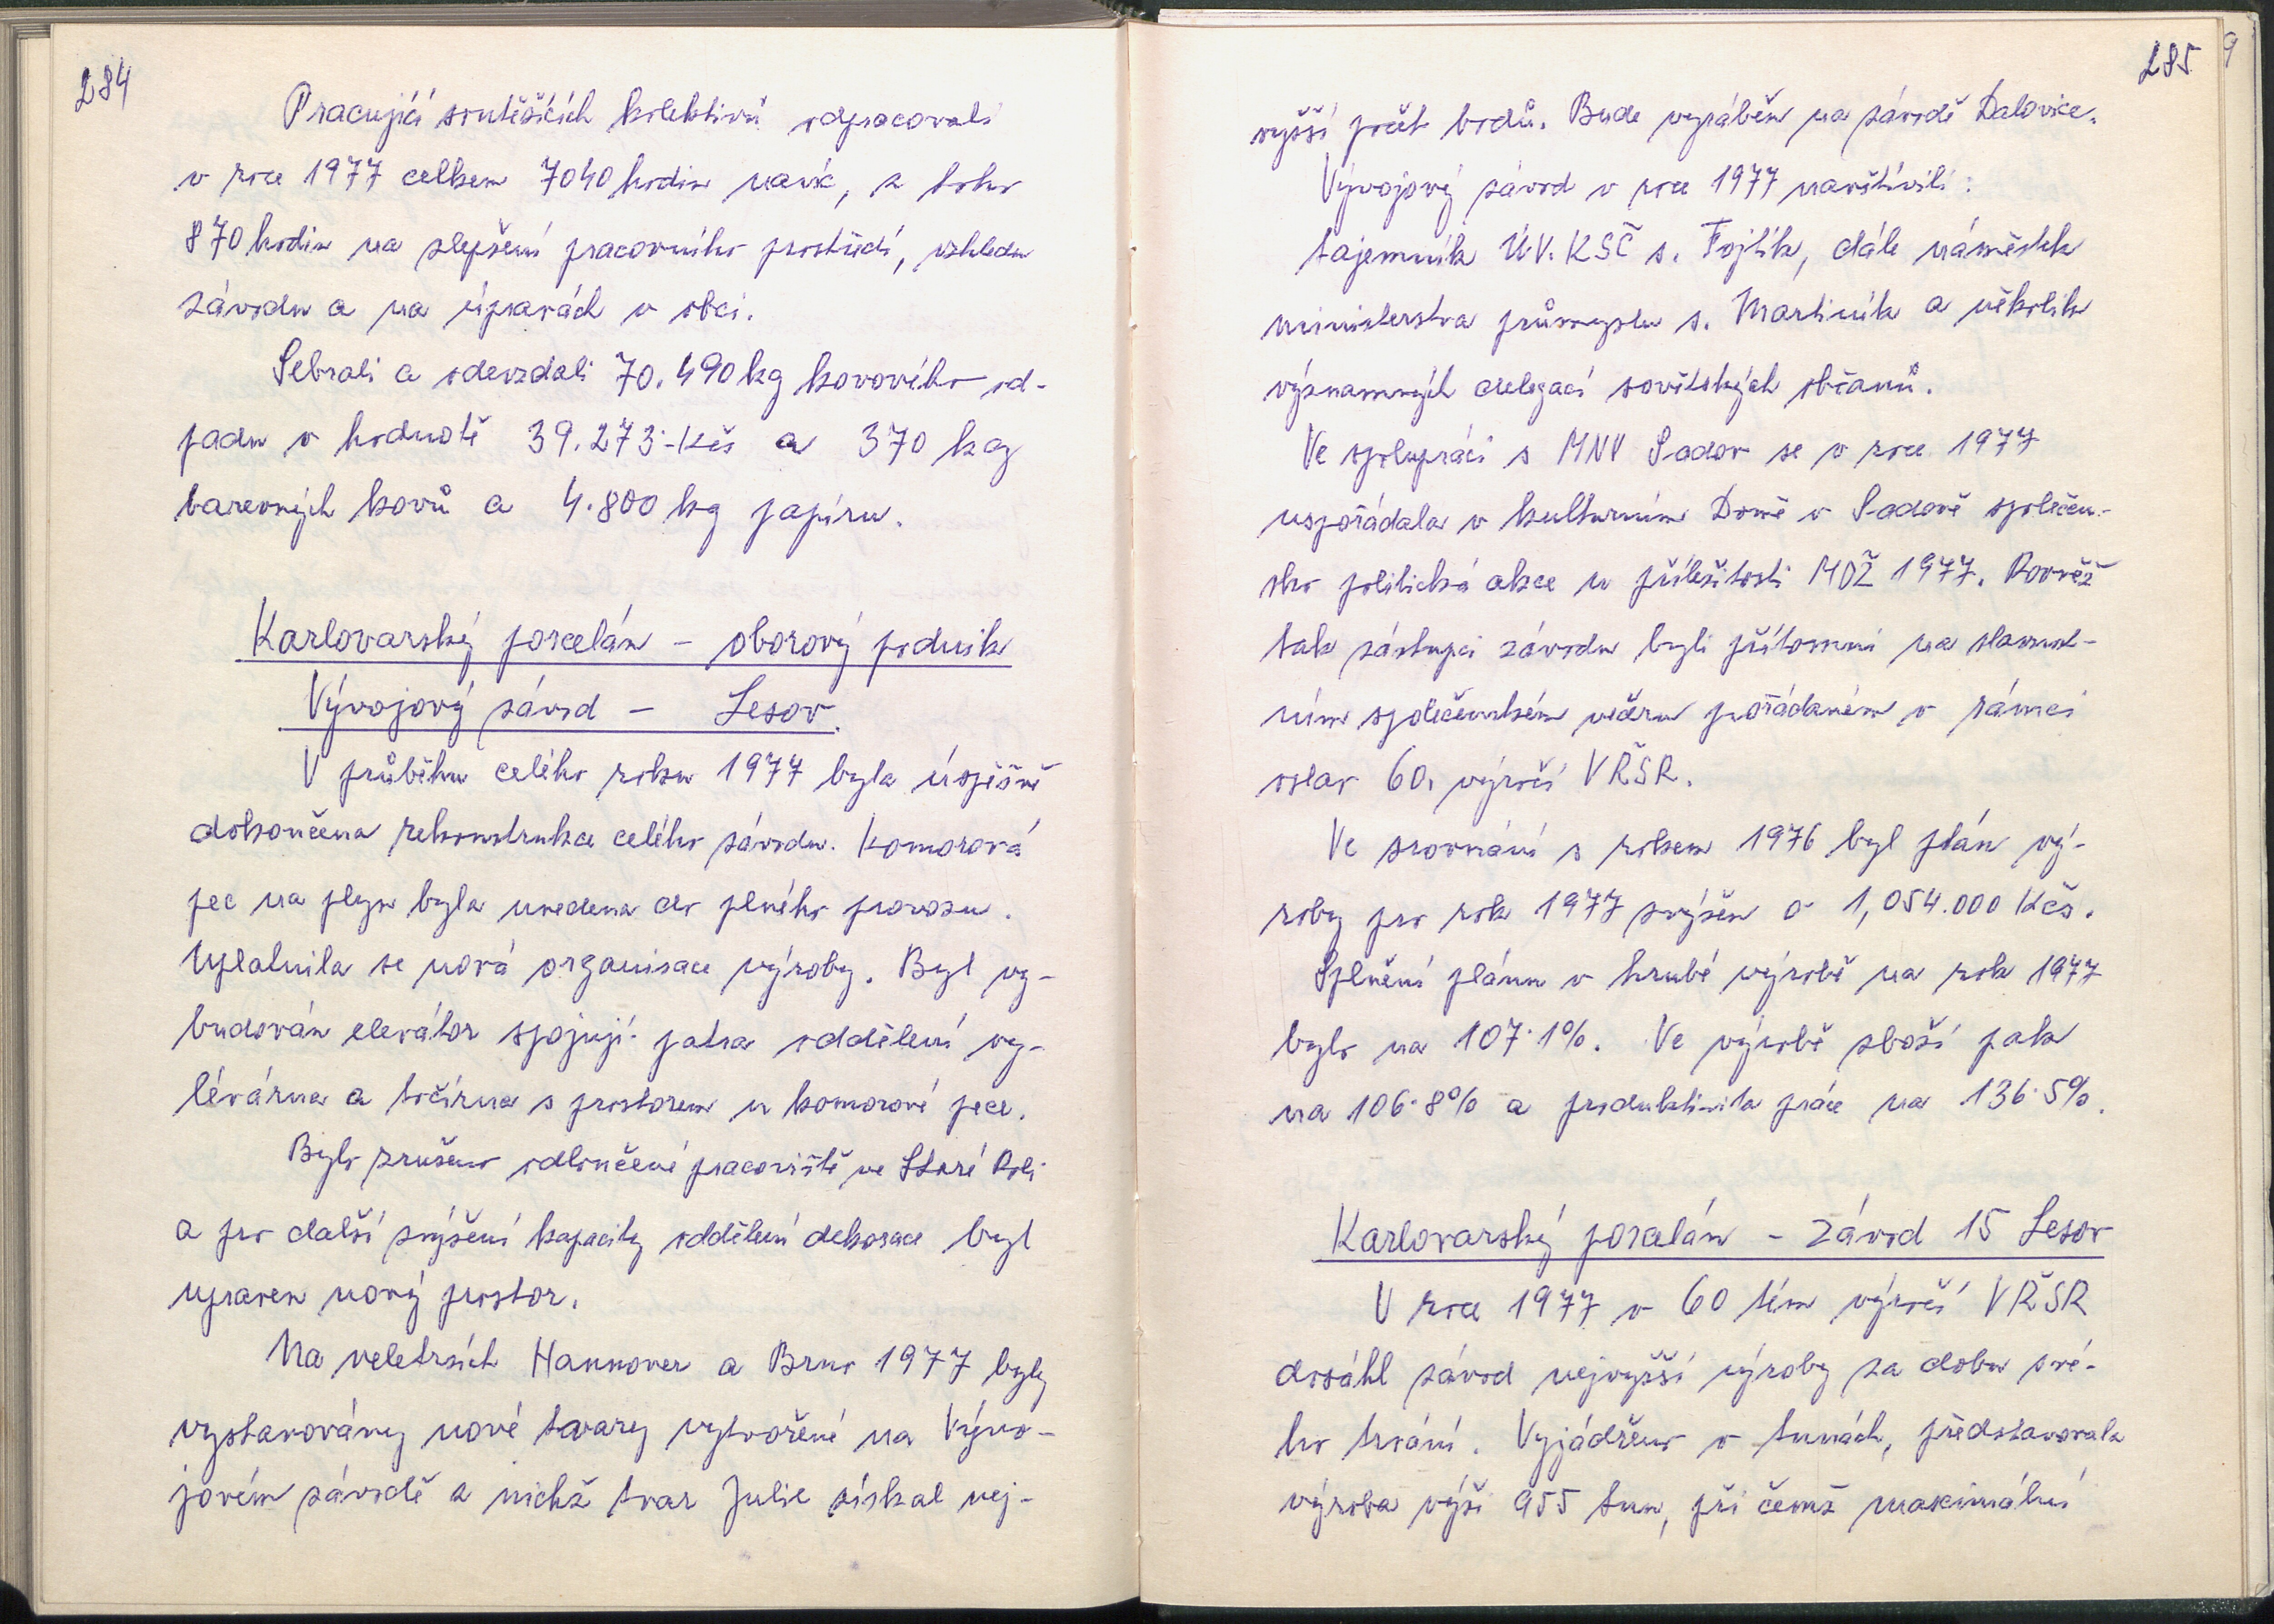 284
Pracující soutěžících kolektivů odpracovali
v roce 1977 celkem 7040 hodin navíc, z toho
870 hodin na zlepšení pracovního prostředí, vzhledu
závodu a na úpravách v obci.
Sebrali a odevzdali 70.490 kg kovového od-
padu v hodnotě 39.273·-Kčs a 370 kg
barevných kovů a 4.800 kg papíru.
Karlovarský porcelán - oborový podnik
Vývojový závod - Lesov.
V průběhu celého roku 1977 byla úspěšně
dokončena rekonstrukce celého závodu. Komorová
pec na plyn byla uvedena do plného provozu.
Uplatnila se nová organisace výroby. Byl vy-
budován elevátor spojují patra oddělení vy-
lévárna a točírna s prostorem u komorové pece.
Bylo zrušeno odloučené pracoviště ve Staré Roli
a pro další zvýšení kapacity oddělení dekorace byl
upraven nový prostor.
Na veletrzích Hannover a Brno 1977 byly
vystavovány nové tvary vytvořené na Vývo-
jovém závodě z nichž tvar Julie získal nej-
285
9
vyšší počet bodů. Bude vyráběn na závodě Dalovice.
Vývojový závod v roce 1977 navštívili:
tajemník ÚV. KSČ s. Fojtík, dále náměstek
ministerstva průmyslu s. Martiník a několik
významných delegací sovětských občanů.
Ve spolupráci s MNV Sadov se v roce 1977
uspořádala v kulturním Domě v Sadově společen-
sko politická akce u příležitosti MDŽ 1977. Rovněž
tak zástupci závodu byli přítomni na slavnost-
ním společenském večeru pořádaném v rámci
oslav 60. výročí VŘSR.
Ve srovnání s rokem 1976 byl plán vý-
roby pro rok 1977 zvýšen o 1,054.000 Kčs.
Splnění plánu v hrubé výrobě na rok 1977
bylo na 107·1%. Ve výrobě zboží pak
na 106·8% a produktivita práce na 136·5%.
Karlovarský porcelán - závod 15 Lesov
V roce 1977 v 60 tém výročí VŘSR
dosáhl závod nejvyšší výroby za dobu své-
ho trvání. Vyjádřeno v tunách, představovala
výroba výši 955 tun, při čemž maximální